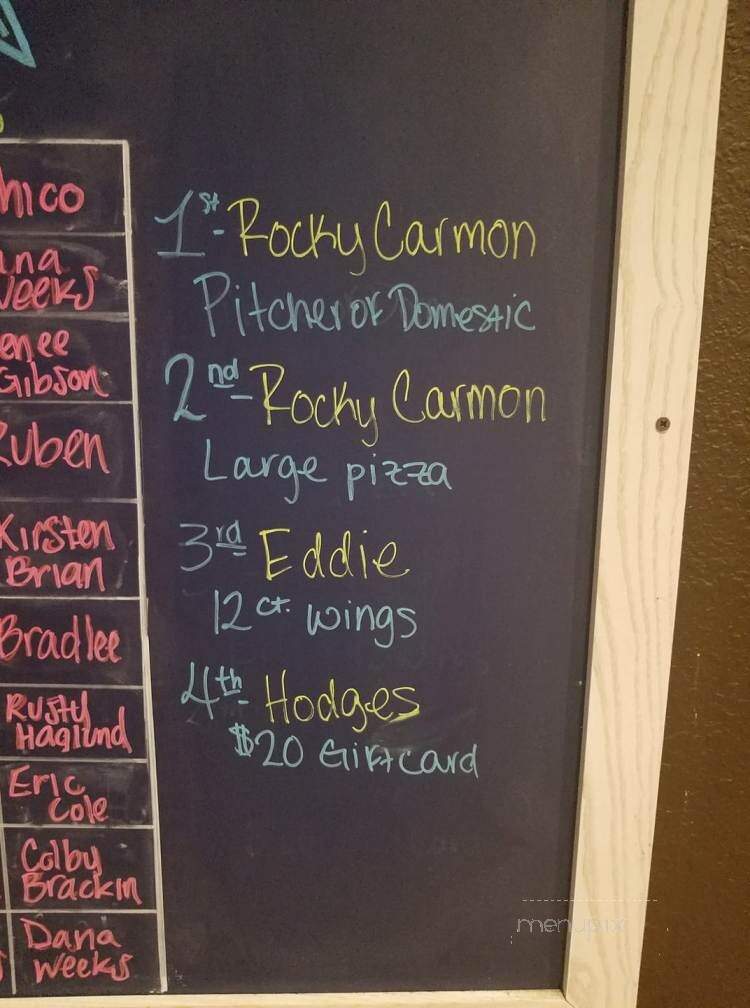 hico
ana
Weeks
enee
Gibson
Ruben
Kirsten
Brian
Bradlee
Rusty
Haglund
Eric
Cole
Colby
Brackin
Dana
Weeks
1st - Rocky Carmon
Pitcher of Domestic
2nd - Rocky Carmon
Large pizza
3rd - Eddie
12 ct. wings
4th - Hodges
$20 Giftcard
menupix